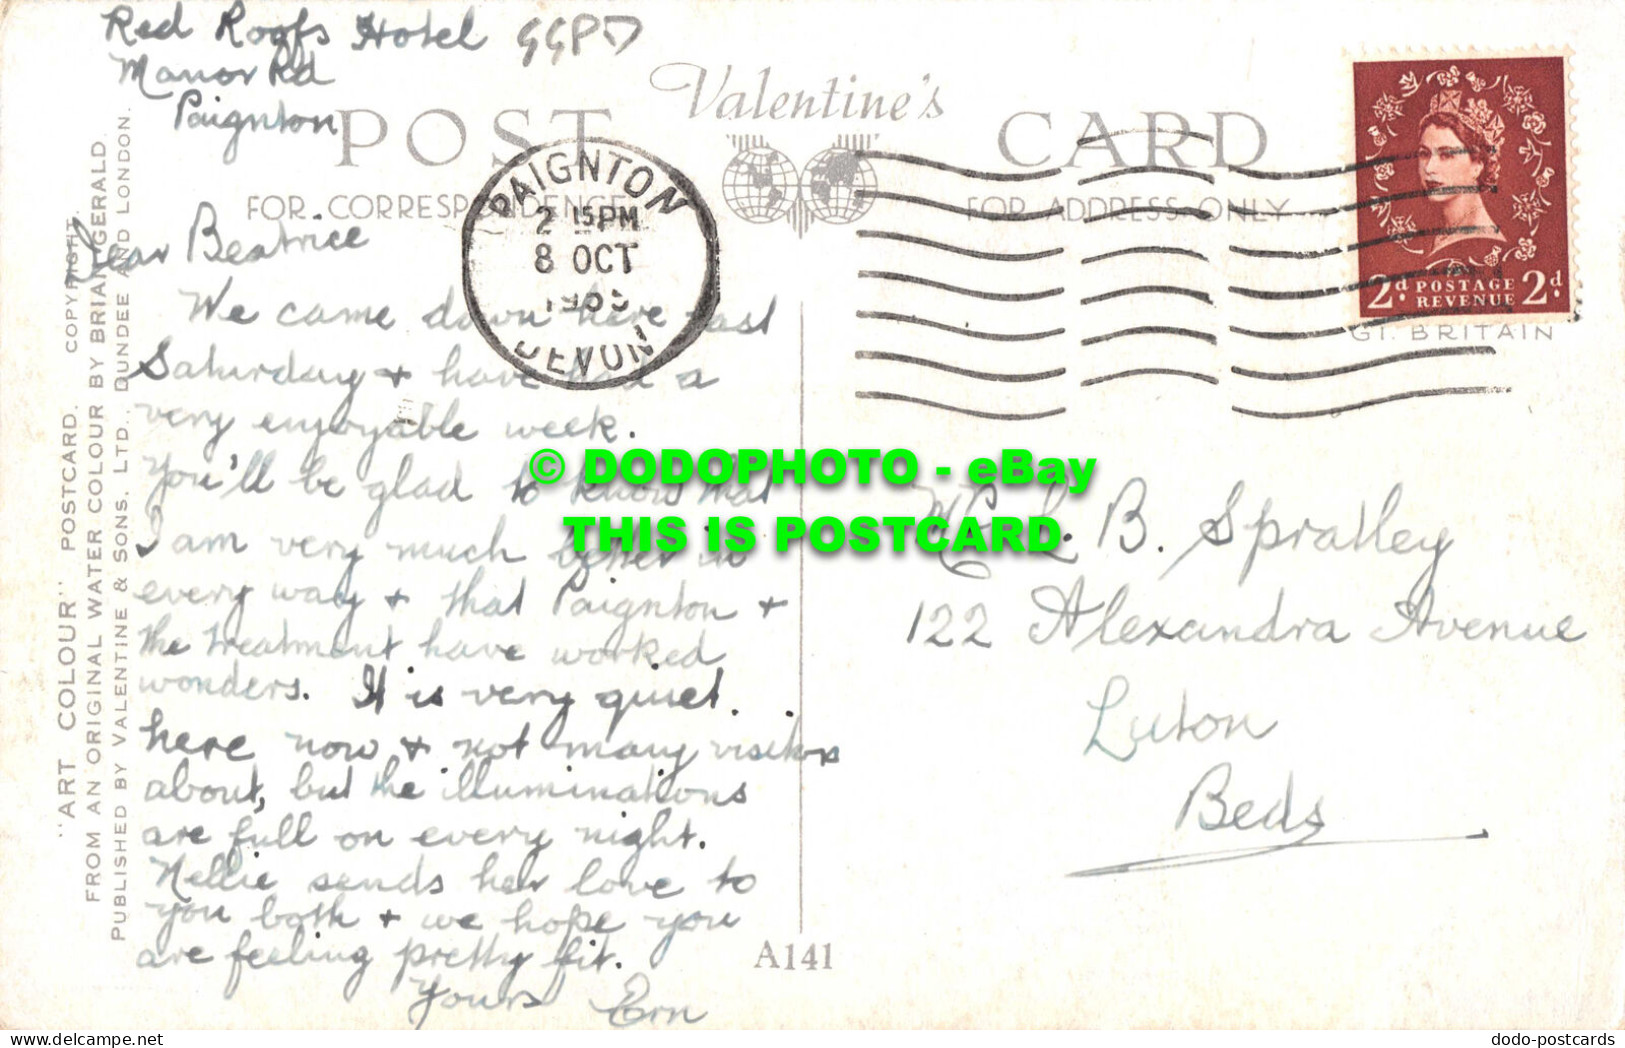 Red Roofs Hotel
Manor Rd
Paignton
GGPD
POST
Valentine's
CARD
FOR CORRESPONDENCE
FOR ADDRESS ONLY
PAIGNTON
2 15 PM
8 OCT
DEVON
2d. POSTAGE REVENUE 2d.
GT. BRITAIN
Dear Beatrice
We came down here last
Saturday + have had a
very enjoyable week.
You'll be glad to know that
I am very much better in
every way + that Paignton +
the treatment have worked
wonders. It is very quiet
here now + not many visitors
about, but the illuminations
are full on every night.
Nellie sends her love to
you both + we hope you
are feeling pretty fit.
Yours Ern
© DODOPHOTO - eBay
THIS IS POSTCARD
L. B. Spratley
122 Alexandra Avenue
Luton
Beds
A141
"ART COLOUR" POSTCARD. COPYRIGHT.
FROM AN ORIGINAL WATER COLOUR BY BRIAN GERALD.
PUBLISHED BY VALENTINE & SONS, LTD., DUNDEE AND LONDON.
dodo-postcards